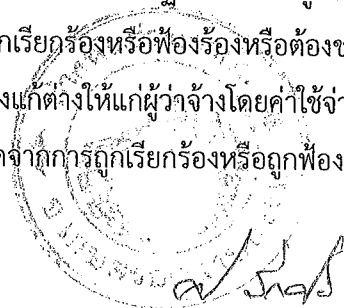 กเรียกร้องหรือฟ้องร้องหรือต้องช
งแก้ต่างให้แก่ผู้ว่าจ้างโดยค่าใช้จ่
จากการถูกเรียกร้องหรือถูกฟ้อง